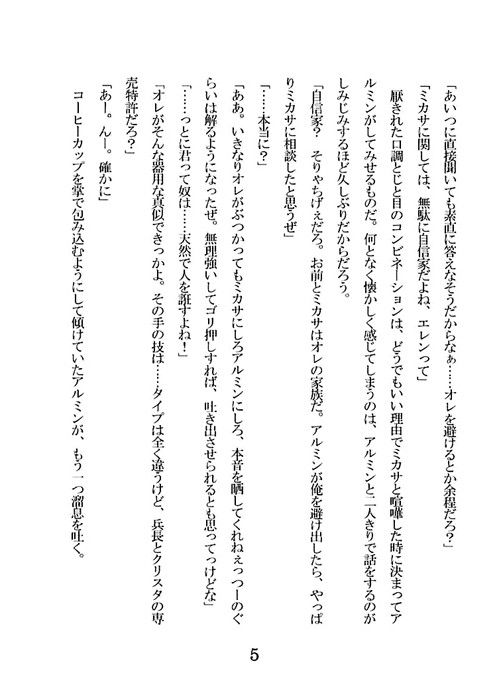 「あいつに直接聞いても素直に答えなそうだからなぁ……オレを避けるとか余程だろ？」
「ミカサに関しては、無駄に自信家だよね、エレンって」
厭きれた口調とじと目のコンビネーションは、どうでもいい理由でミカサと喧嘩した時に決まってア
ルミンがしてみせるものだ。何となく懐かしく感じてしまうのは、アルミンと二人きりで話をするのが
しみじみするほど久しぶりだからだろう。
「自信家？　そりゃちげぇだろ。お前とミカサはオレの家族だ。アルミンが俺を避け出したら、やっぱ
りミカサに相談したと思うぜ」
「……本当に？」
「ああ。いきなりオレがぶつかってもミカサにしろアルミンにしろ、本音を晒してくれねぇっつーのぐ
らいは解るようになったぜ。無理強いしてゴリ押しすれば、吐き出させられるとも思ってっけどな」
「……っとに君って奴は……天然で人を誑すよね！」
「オレがそんな器用な真似できっかよ。その手の技は……タイプは全く違うけど、兵長とクリスタの専
売特許だろ？」
「あー。んー。確かに」
コーヒーカップを掌で包み込むようにして傾けていたアルミンが、もう一つ溜息を吐く。
5